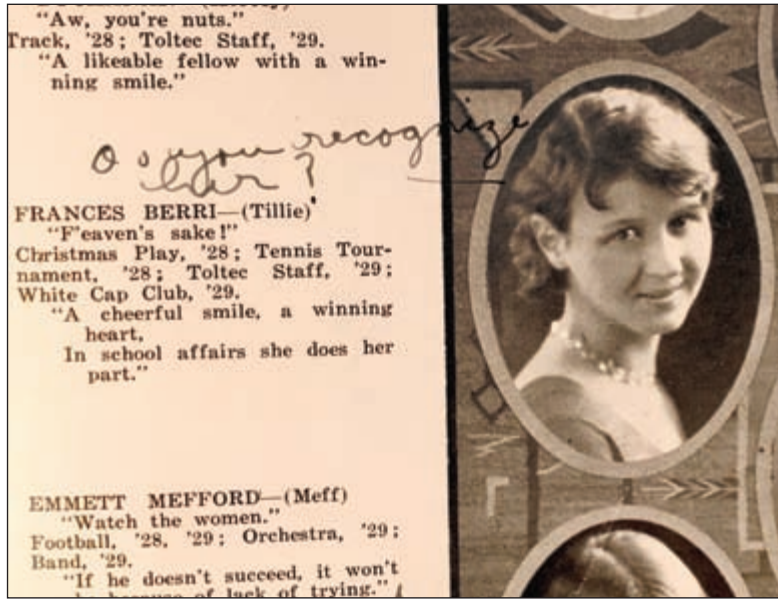 "Aw, you're nuts."
Track, '28; Toltec Staff, '29.
"A likeable fellow with a win-
ning smile."
Do you recognize
her?
FRANCES BERRI—(Tillie)
"F'eaven's sake!"
Christmas Play, '28; Tennis Tour-
nament, '28; Toltec Staff, '29;
White Cap Club, '29.
"A cheerful smile, a winning
heart,
In school affairs she does her
part."
EMMETT MEFFORD—(Meff)
"Watch the women."
Football, '28, '29; Orchestra, '29;
Band, '29.
"If he doesn't succeed, it won't
be because of lack of trying."